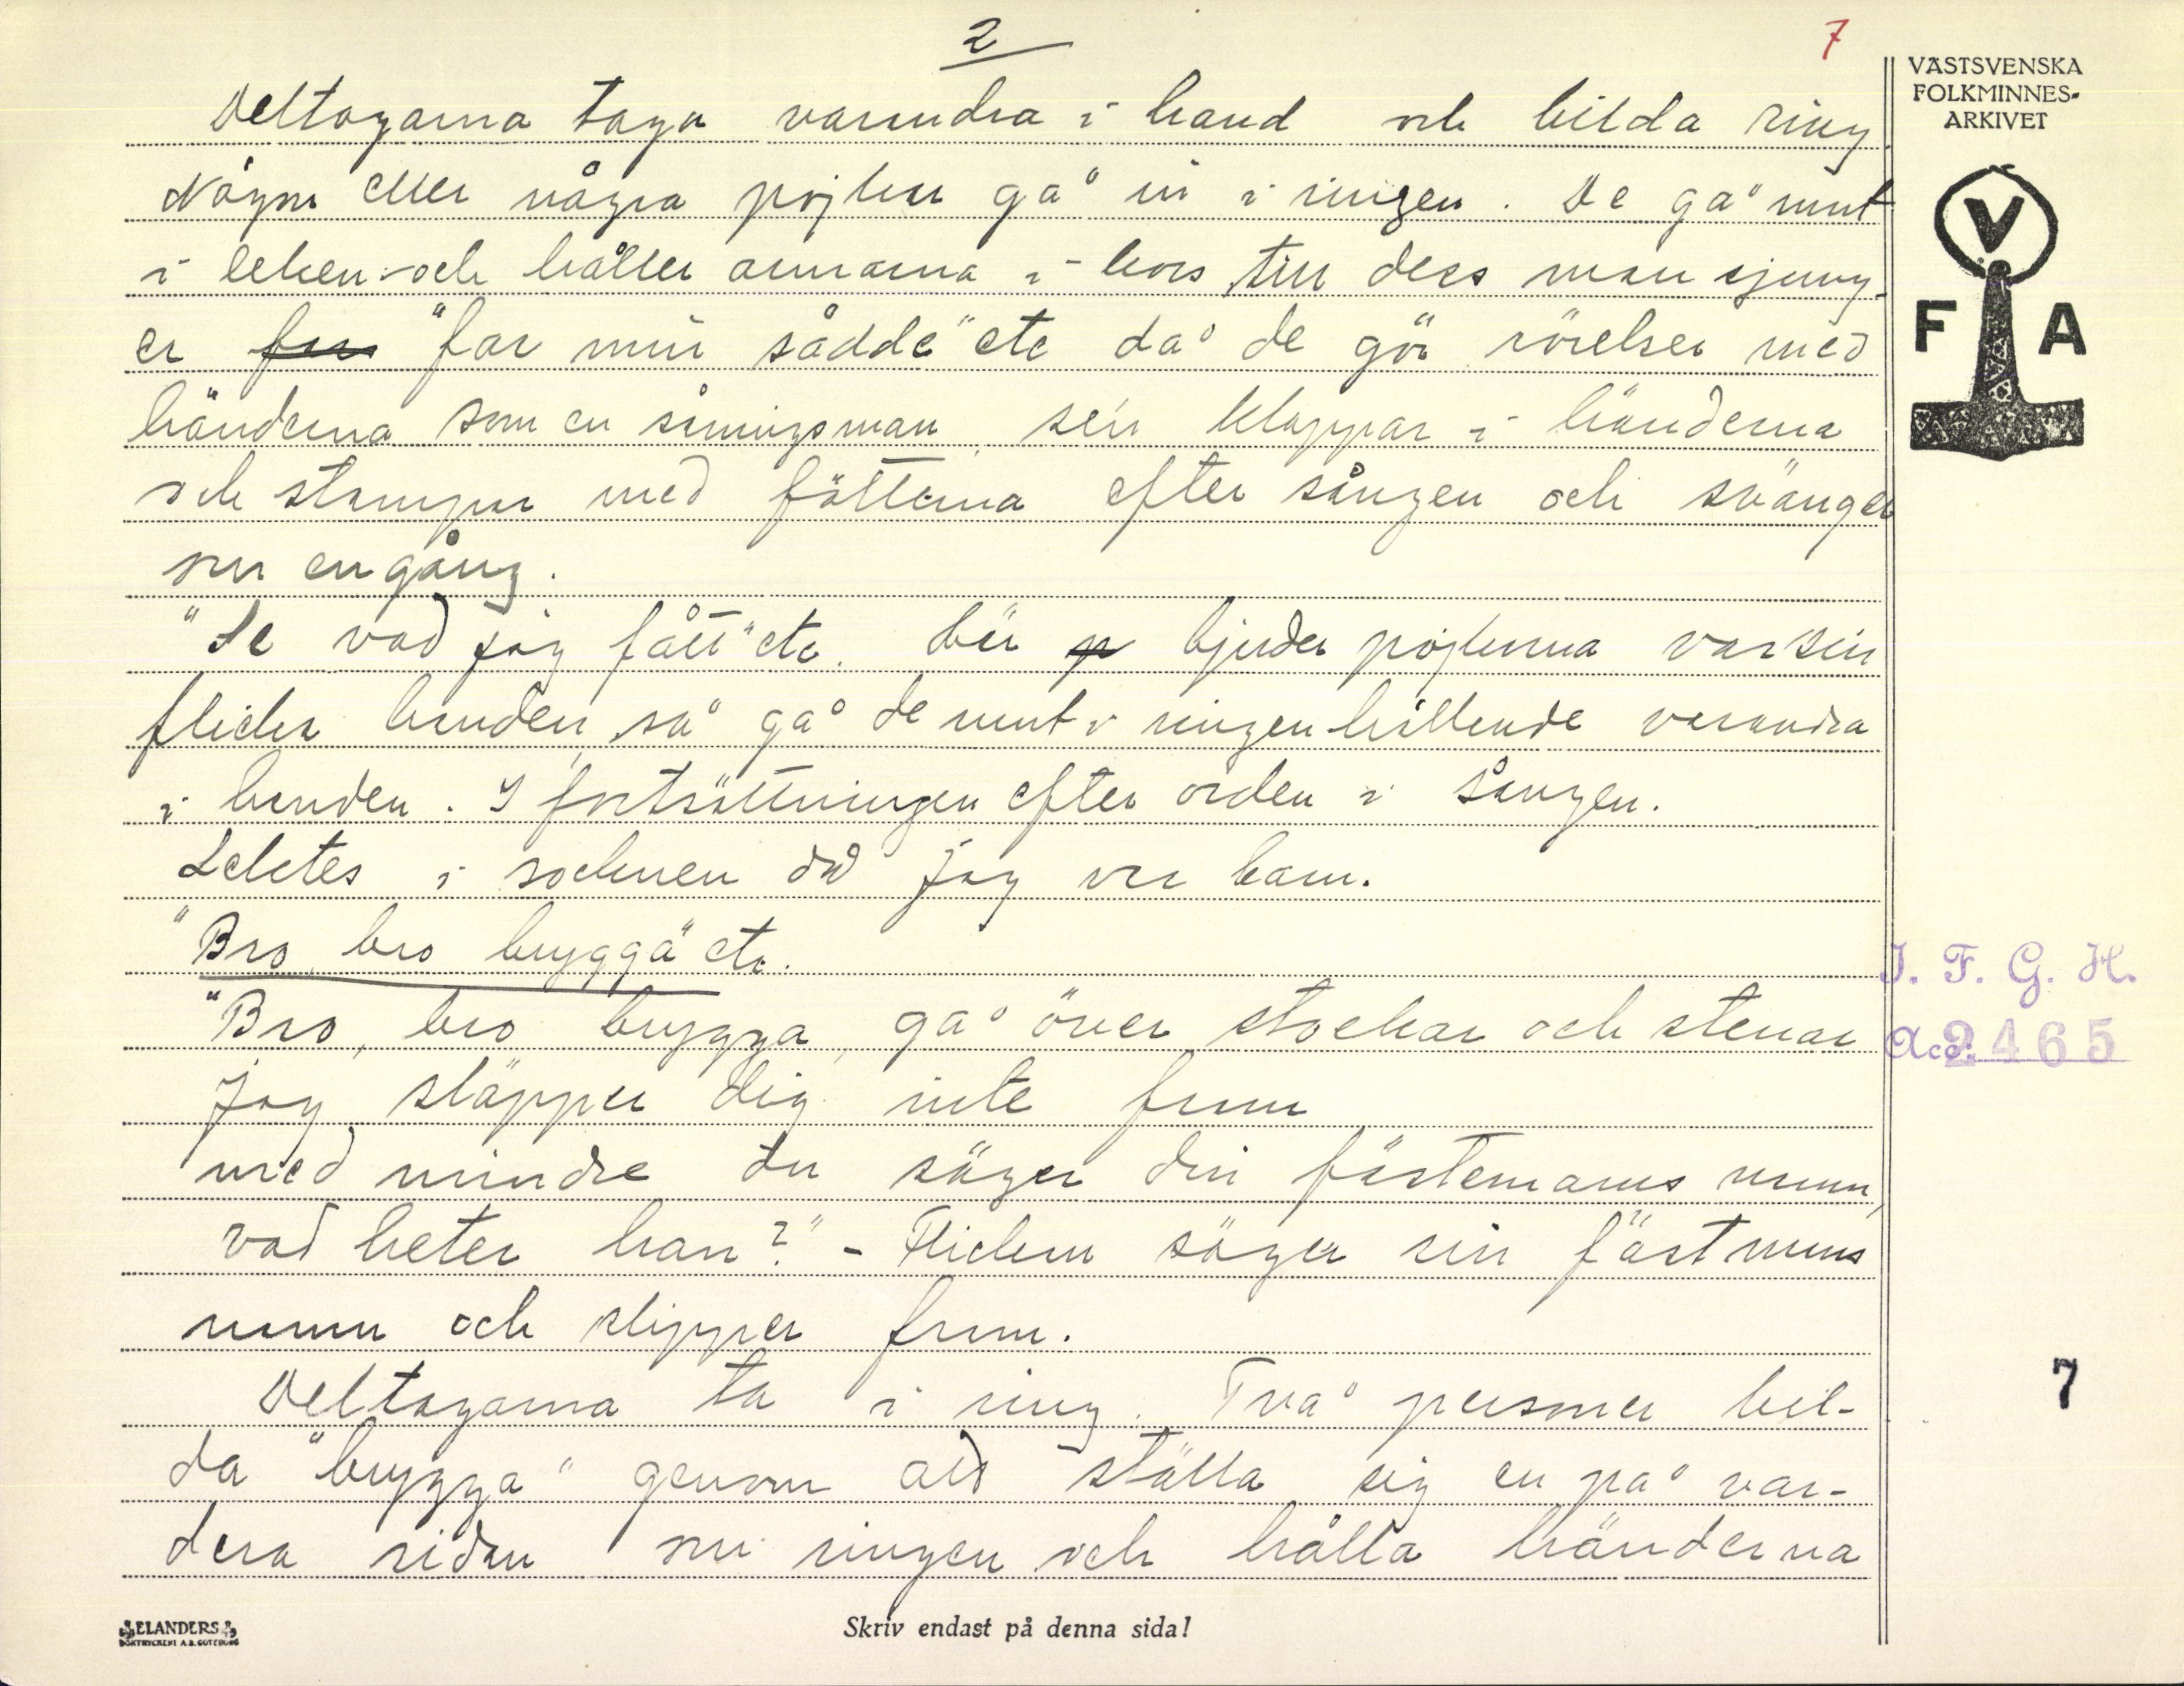 2
7
VÄSTSVENSKA
FOLKMINNES-
ARKIVET
V
F A
Deltagarna taga varandra i hand och bilda ring
Någon eller några pojkar gå in i ringen. De gå runt
i leken och håller armarna i kors, till dess man sjung-
er "far min sådde" etc då de gör rörelser med
händerna som en såningsman, sen klappar i händerna
och stampar med fötterna efter sången och svänger
om en gång.
"Se vad jag fått" etc. här bjuder pojkarna varsin
flicka handen, så gå de runt i ringen hållande varandra
i handen. I fortsättningen efter orden i sången.
Lektes i socknen då jag var barn.
"Bro, bro brygga" etc.
"Bro, bro brygga, gå över stockar och stenar
Jag släpper dig inte fram
med mindre du säger din fästemans namn,
vad heter han?" - Flickan säger sin fästmans
namn och slipper fram.
Deltagarna ta i ring. Två personer bil-
da "brygga" genom att ställa sig en på var-
dera sidan om ringen och hålla händerna
I. F. G. H.
Acc. 2465
7
ELANDERS
BOKTRYCKERI A.B. GÖTEBORG
Skriv endast på denna sida!